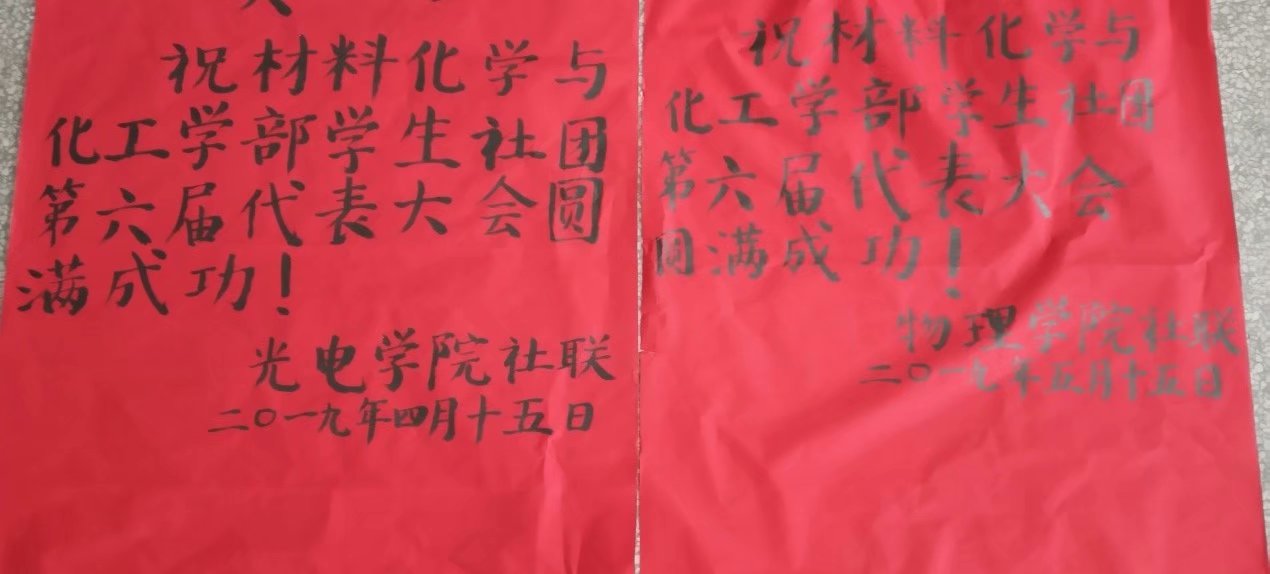 祝材料化学与
化工学部学生社团
第六届代表大会圆
满成功！
光电学院社联
二〇一九年四月十五日
祝材料化学与
化工学部学生社团
第六届代表大会
圆满成功！
物理学院社联
二〇一九年五月十五日